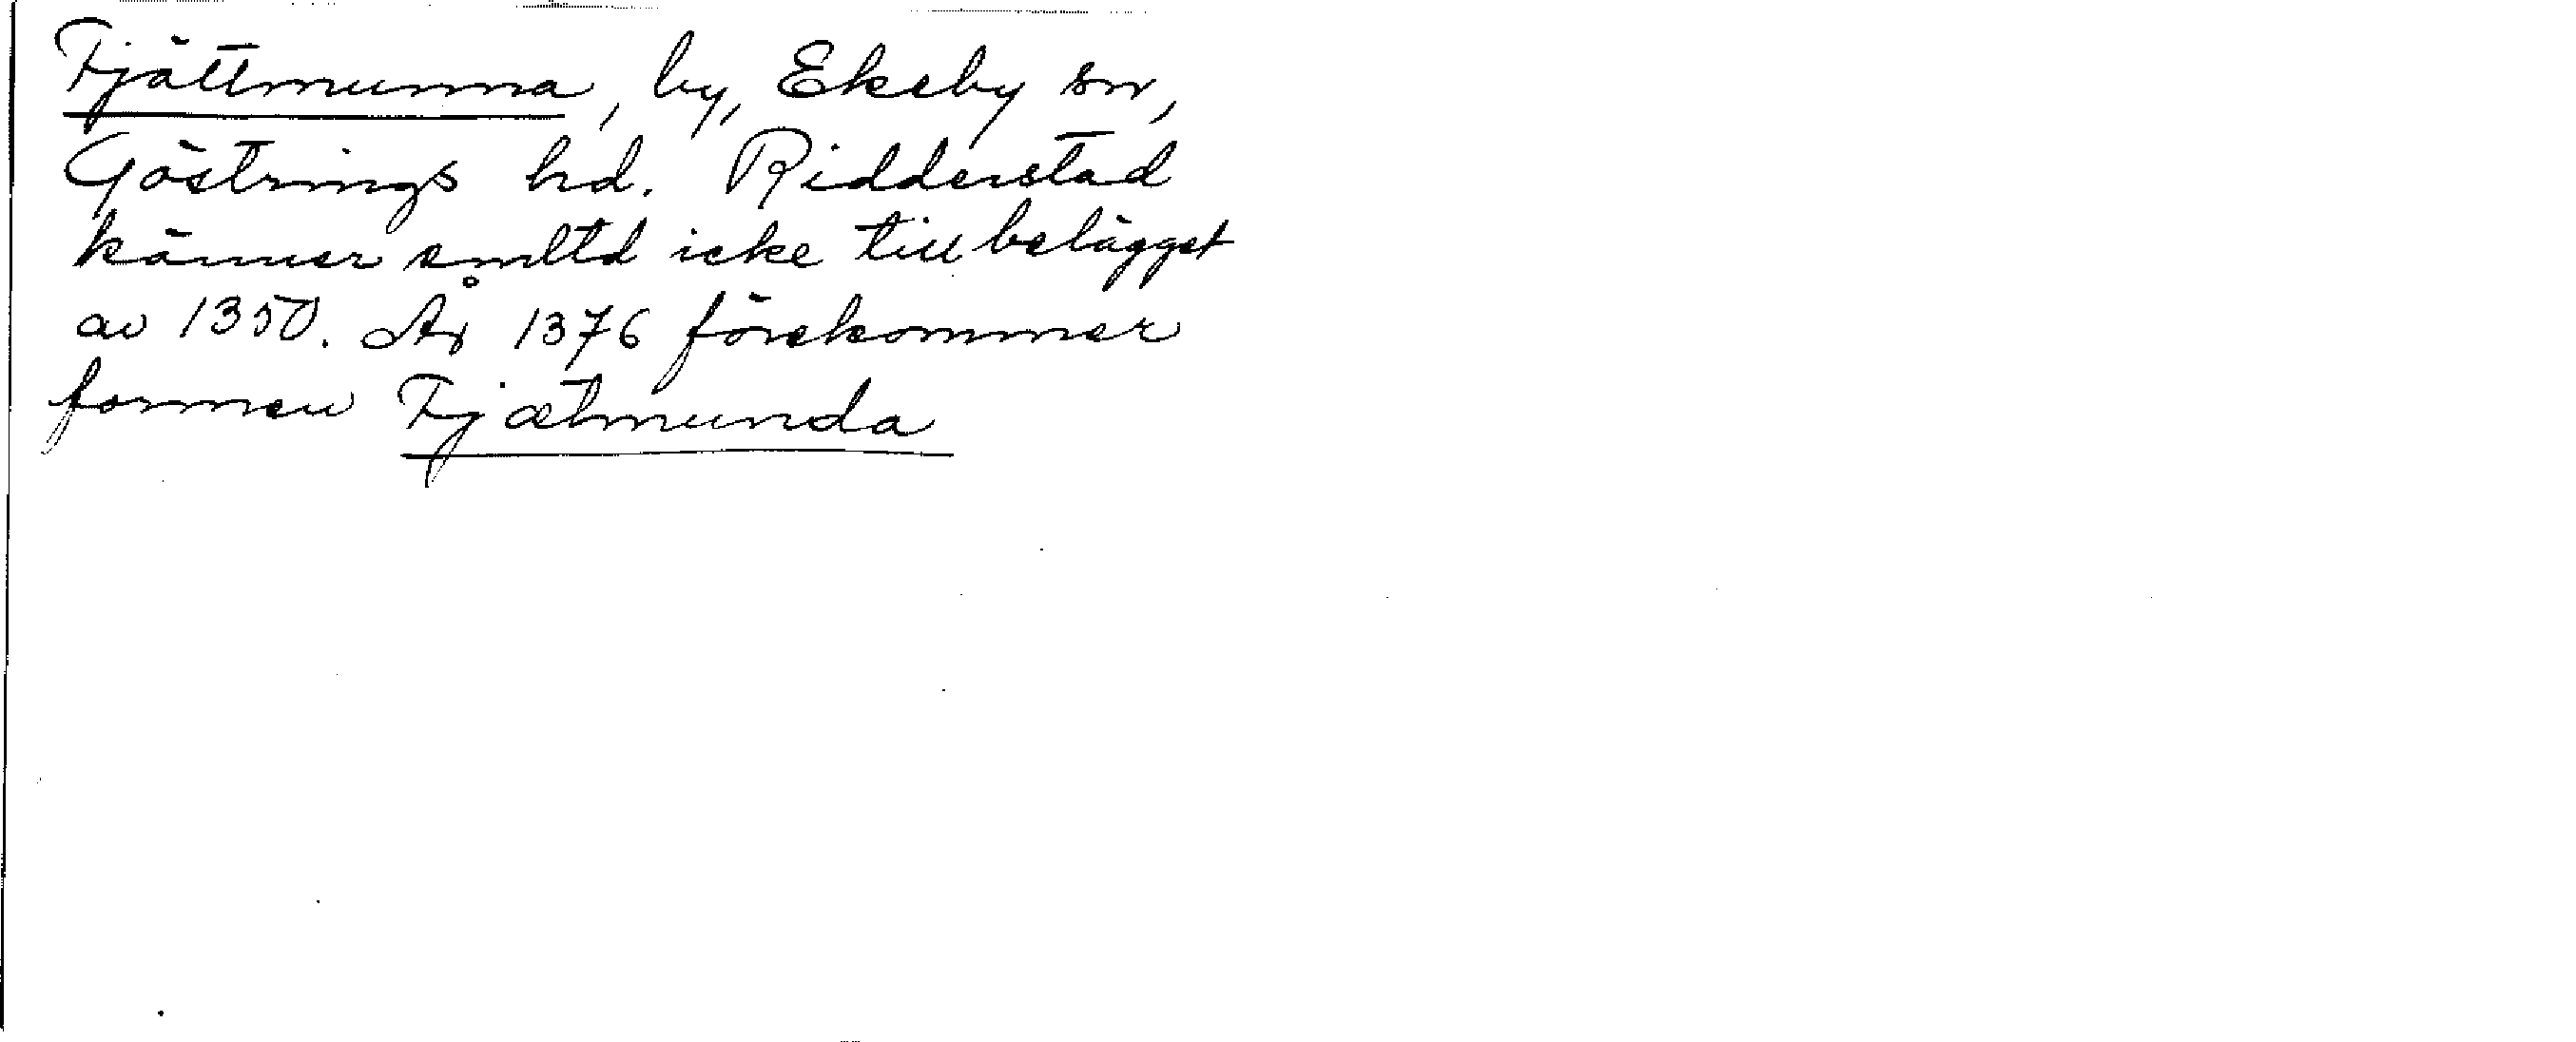 Fjättmunna, by, Ekeby sn,
Göstrings hd. Ridderstad
känner emltd icke till belägget
av 1350. År 1376 förekommer
formen Fjætmunda